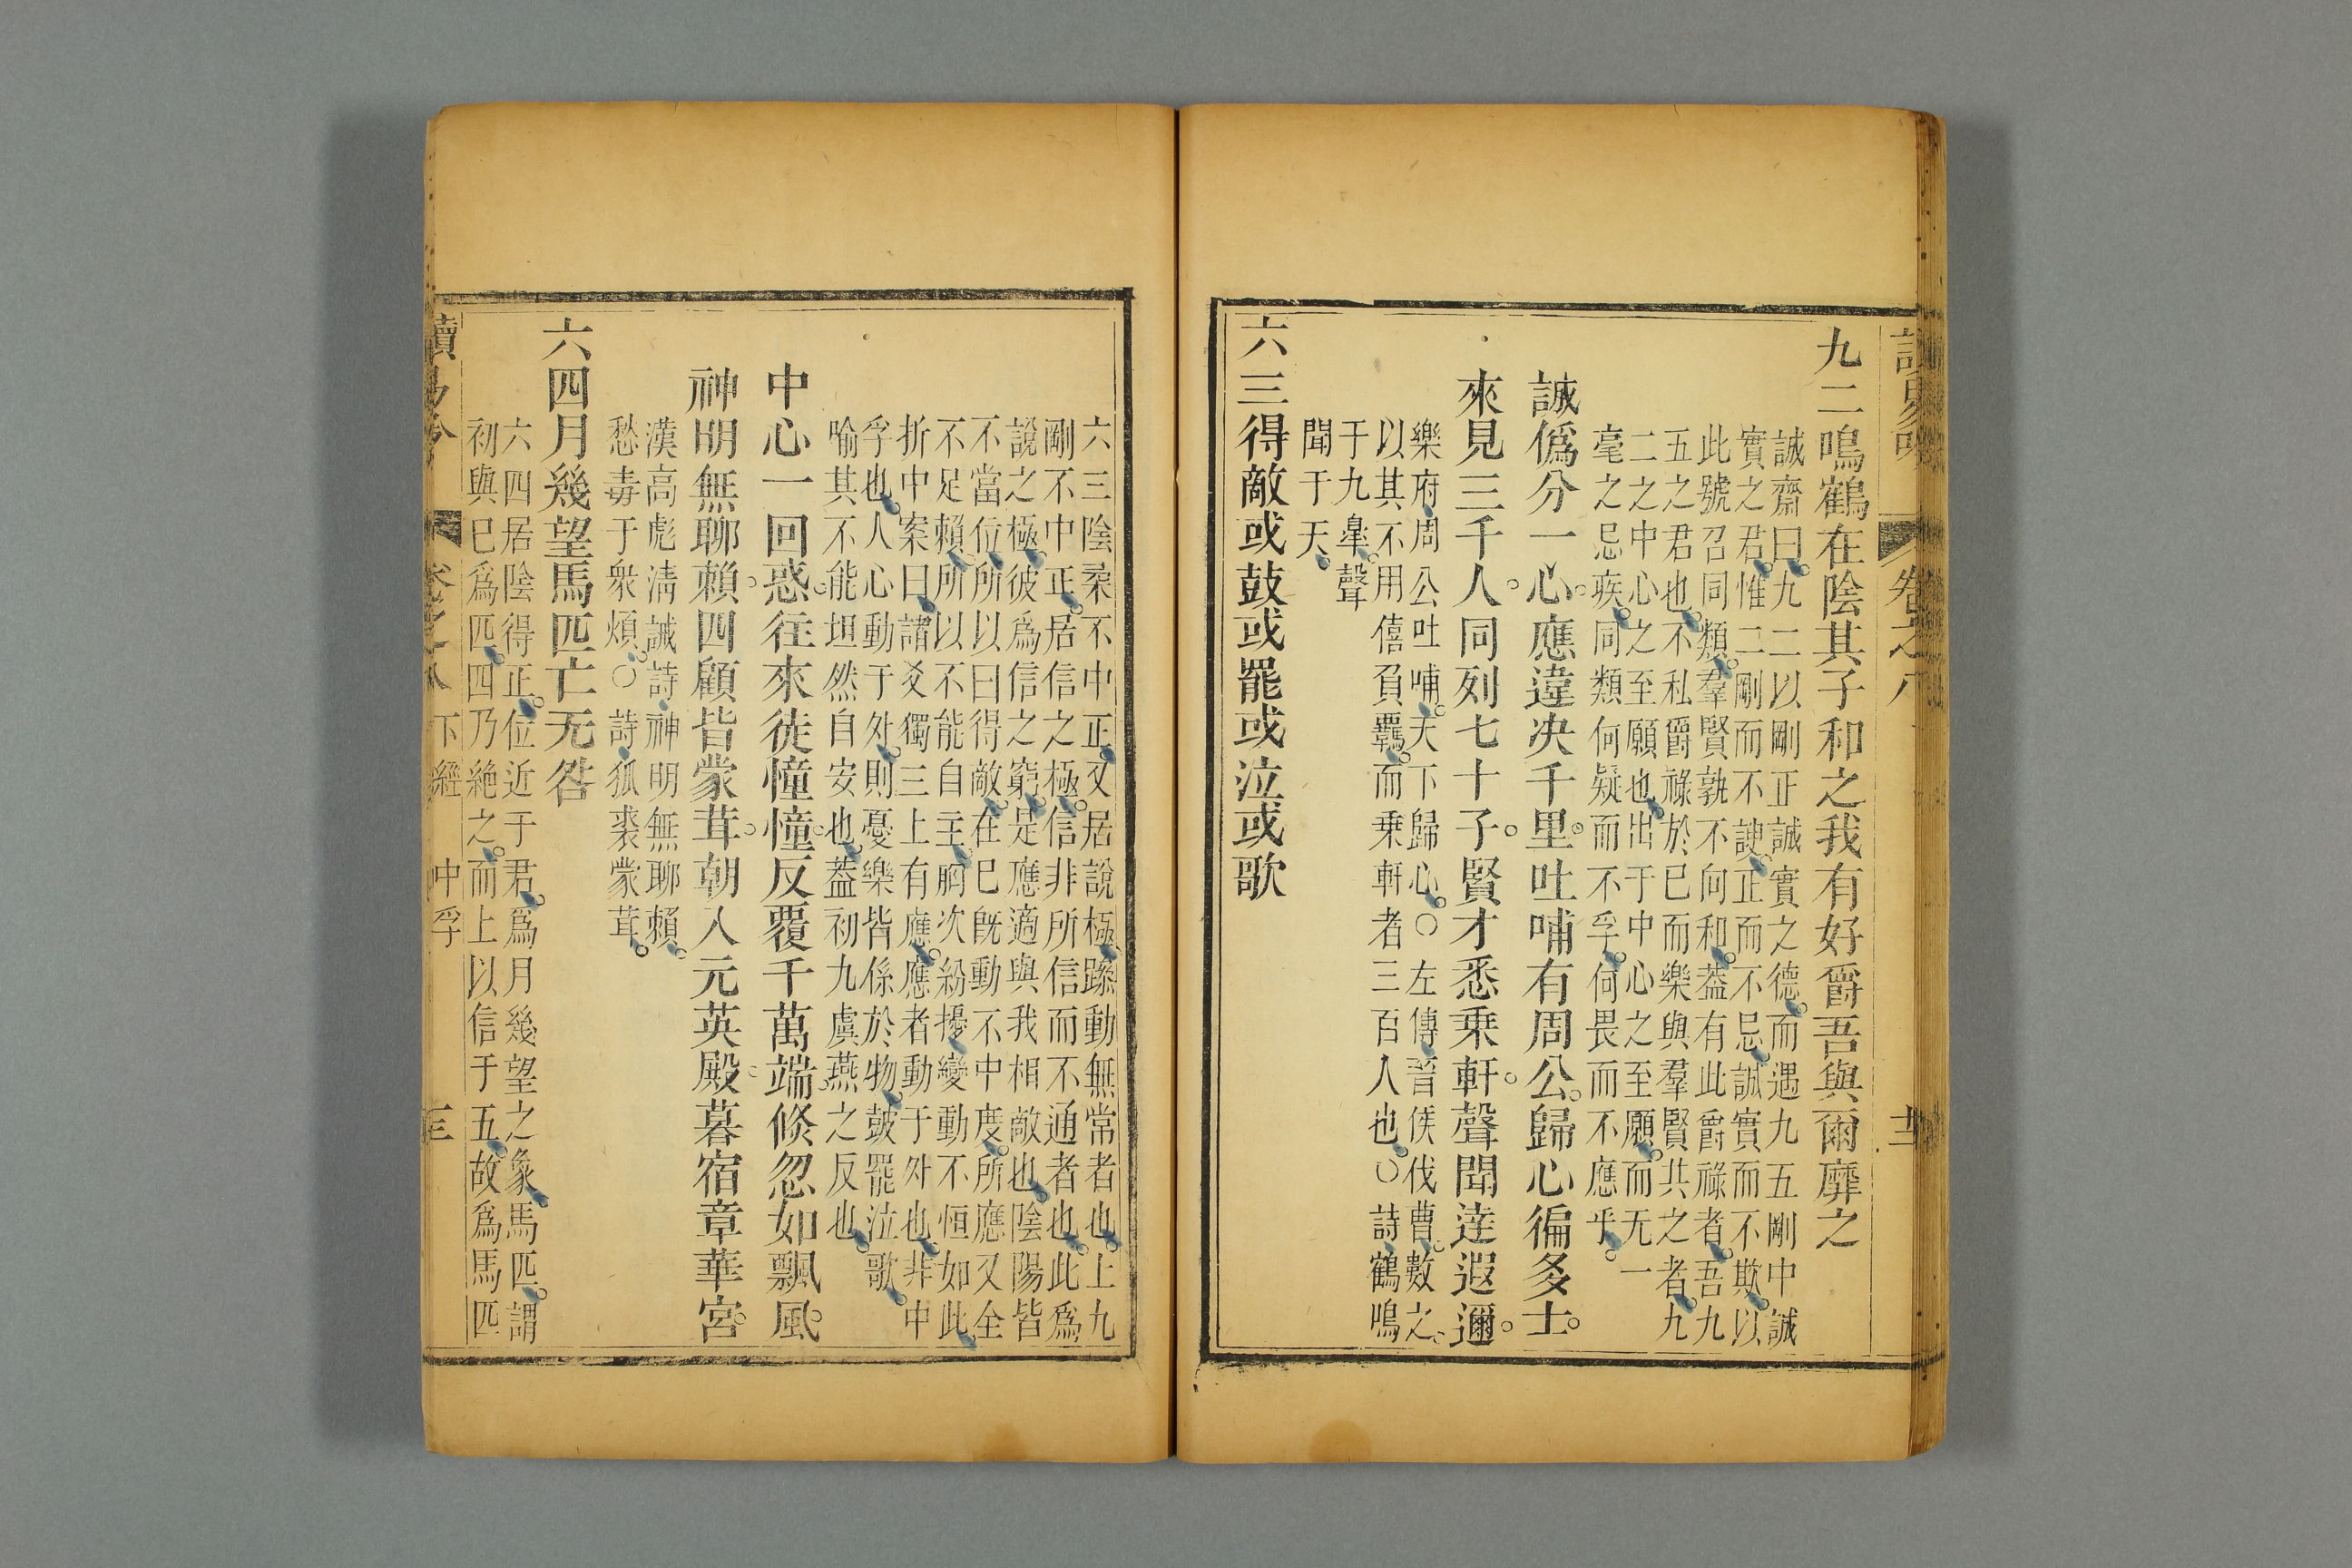 卷之八
九二鳴鶴在陰其子和之我有好爵吾與爾靡之
誠齋曰九二以剛正誠實之德而遇九五剛中誠
實之君惟二剛而不諛正而不忌誠實而不欺以
此號召同類羣賢孰不向和葢有此爵祿者吾九
五之君也不私爵祿於已而樂與羣賢共之者九
二之中心之至願也出于中心之至願而无一
毫之忌疾同類何疑而不孚何畏而不應乎
誠僞分一心應違决千里吐哺有周公歸心徧多士
來見三千人同列七十子賢才悉乗軒聲聞逹遐邇
樂府周公吐哺天下歸心○左傳晉侯伐曹數之
以其不用僖負羈而乗軒者三百人也○詩鶴鳴
于九臯聲
聞于天
六三得敵或鼓或罷或泣或歌
六三陰柔不中正又居說極躁動無常者也上九
剛不中正居信之極信非所信而不通者也此爲
說之極彼爲信之窮是應適與我相敵也陰陽皆
不當位所以曰得敵在已旣動不中度所應又全
不足賴所以不能自主胸次紛擾變動不恒如此
折中案曰諸爻獨三上有應應者動于外也非中
孚也人心動于外則憂樂皆係於物鼓罷泣歌
喻其不能坦然自安也葢初九虞燕之反也
中心一回惑往來徒憧憧反覆千萬端倐忽如飄風
神明無聊賴四顧皆蒙茸朝入元英殿暮宿章華宮
漢高彪淸誡詩神明無聊賴
愁毒于衆煩○詩狐裘蒙茸
六四月幾望馬匹亡无咎
六四居陰得正位近于君爲月幾望之象馬匹謂
初與已爲匹四乃絶之而上以信于五故爲馬匹
讀易 卷之八 下經 中孚